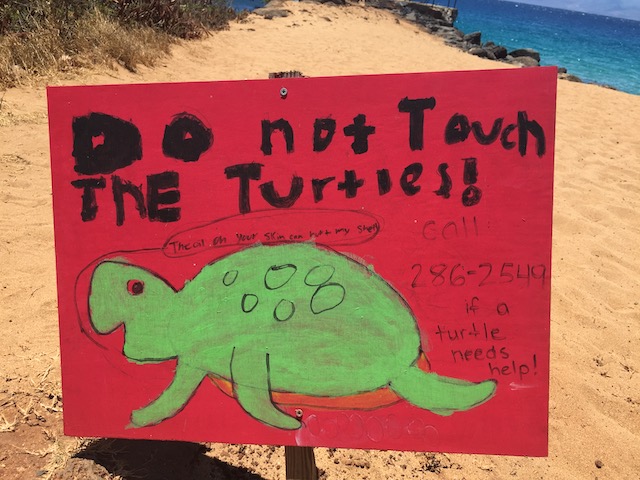 Do not Touch
THE Turtles!
The oil on your skin can hurt my shell
call:
286-2549
if a
turtle
needs
help!